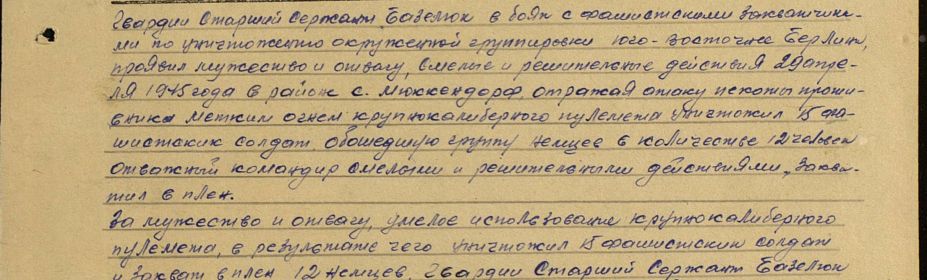 Гвардии Старший Сержант Базелюк в боях с фашистскими захватчика-
ми по уничтожению окруженной группировки юго-восточнее Берлина,
проявил мужество и отвагу, смелые и решительные действия 29 апре-
ля 1945 года в районе с. Мюккендорф, отражая атаку пехоты проти-
вника метким огнем крупнокалиберного пулемета уничтожил 15 фа-
шистских солдат обошедшую группу немцев в количестве 12 человек
отважный командир смелыми и решительными действиями, захва-
тил в плен.
За мужество и отвагу, умелое использование крупнокалиберного
пулемета, в результате чего уничтожил 15 фашистских солдат
и захват в плен 12 немцев, Гвардии Старший Сержант Базелюк